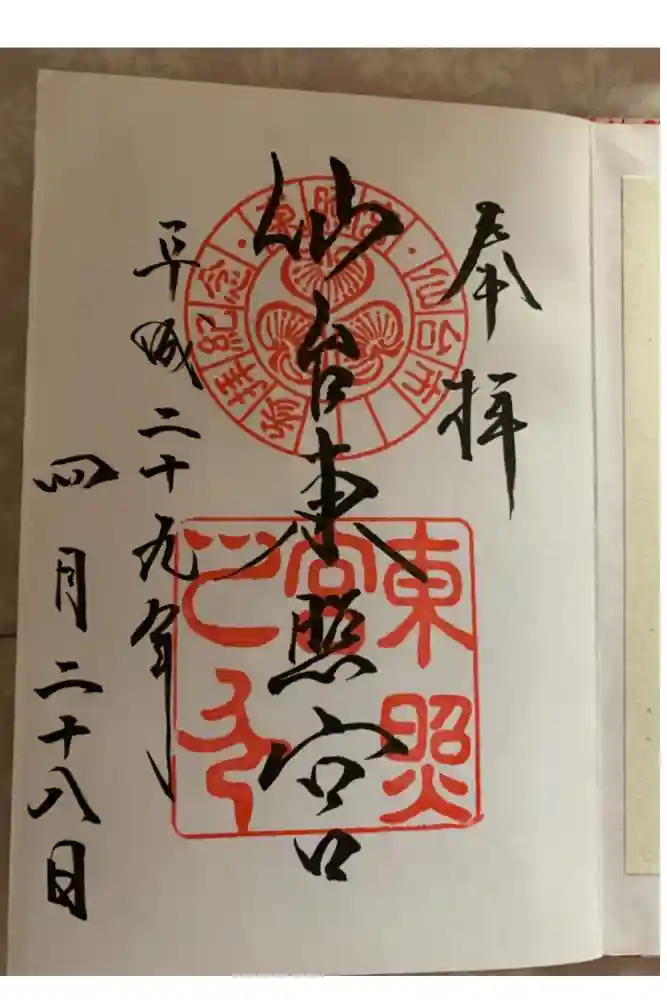 奉拝
仙台東照宮
平成二十九年
四月二十八日
東照宮・仙台市
参拝記念
東照
宮
之印